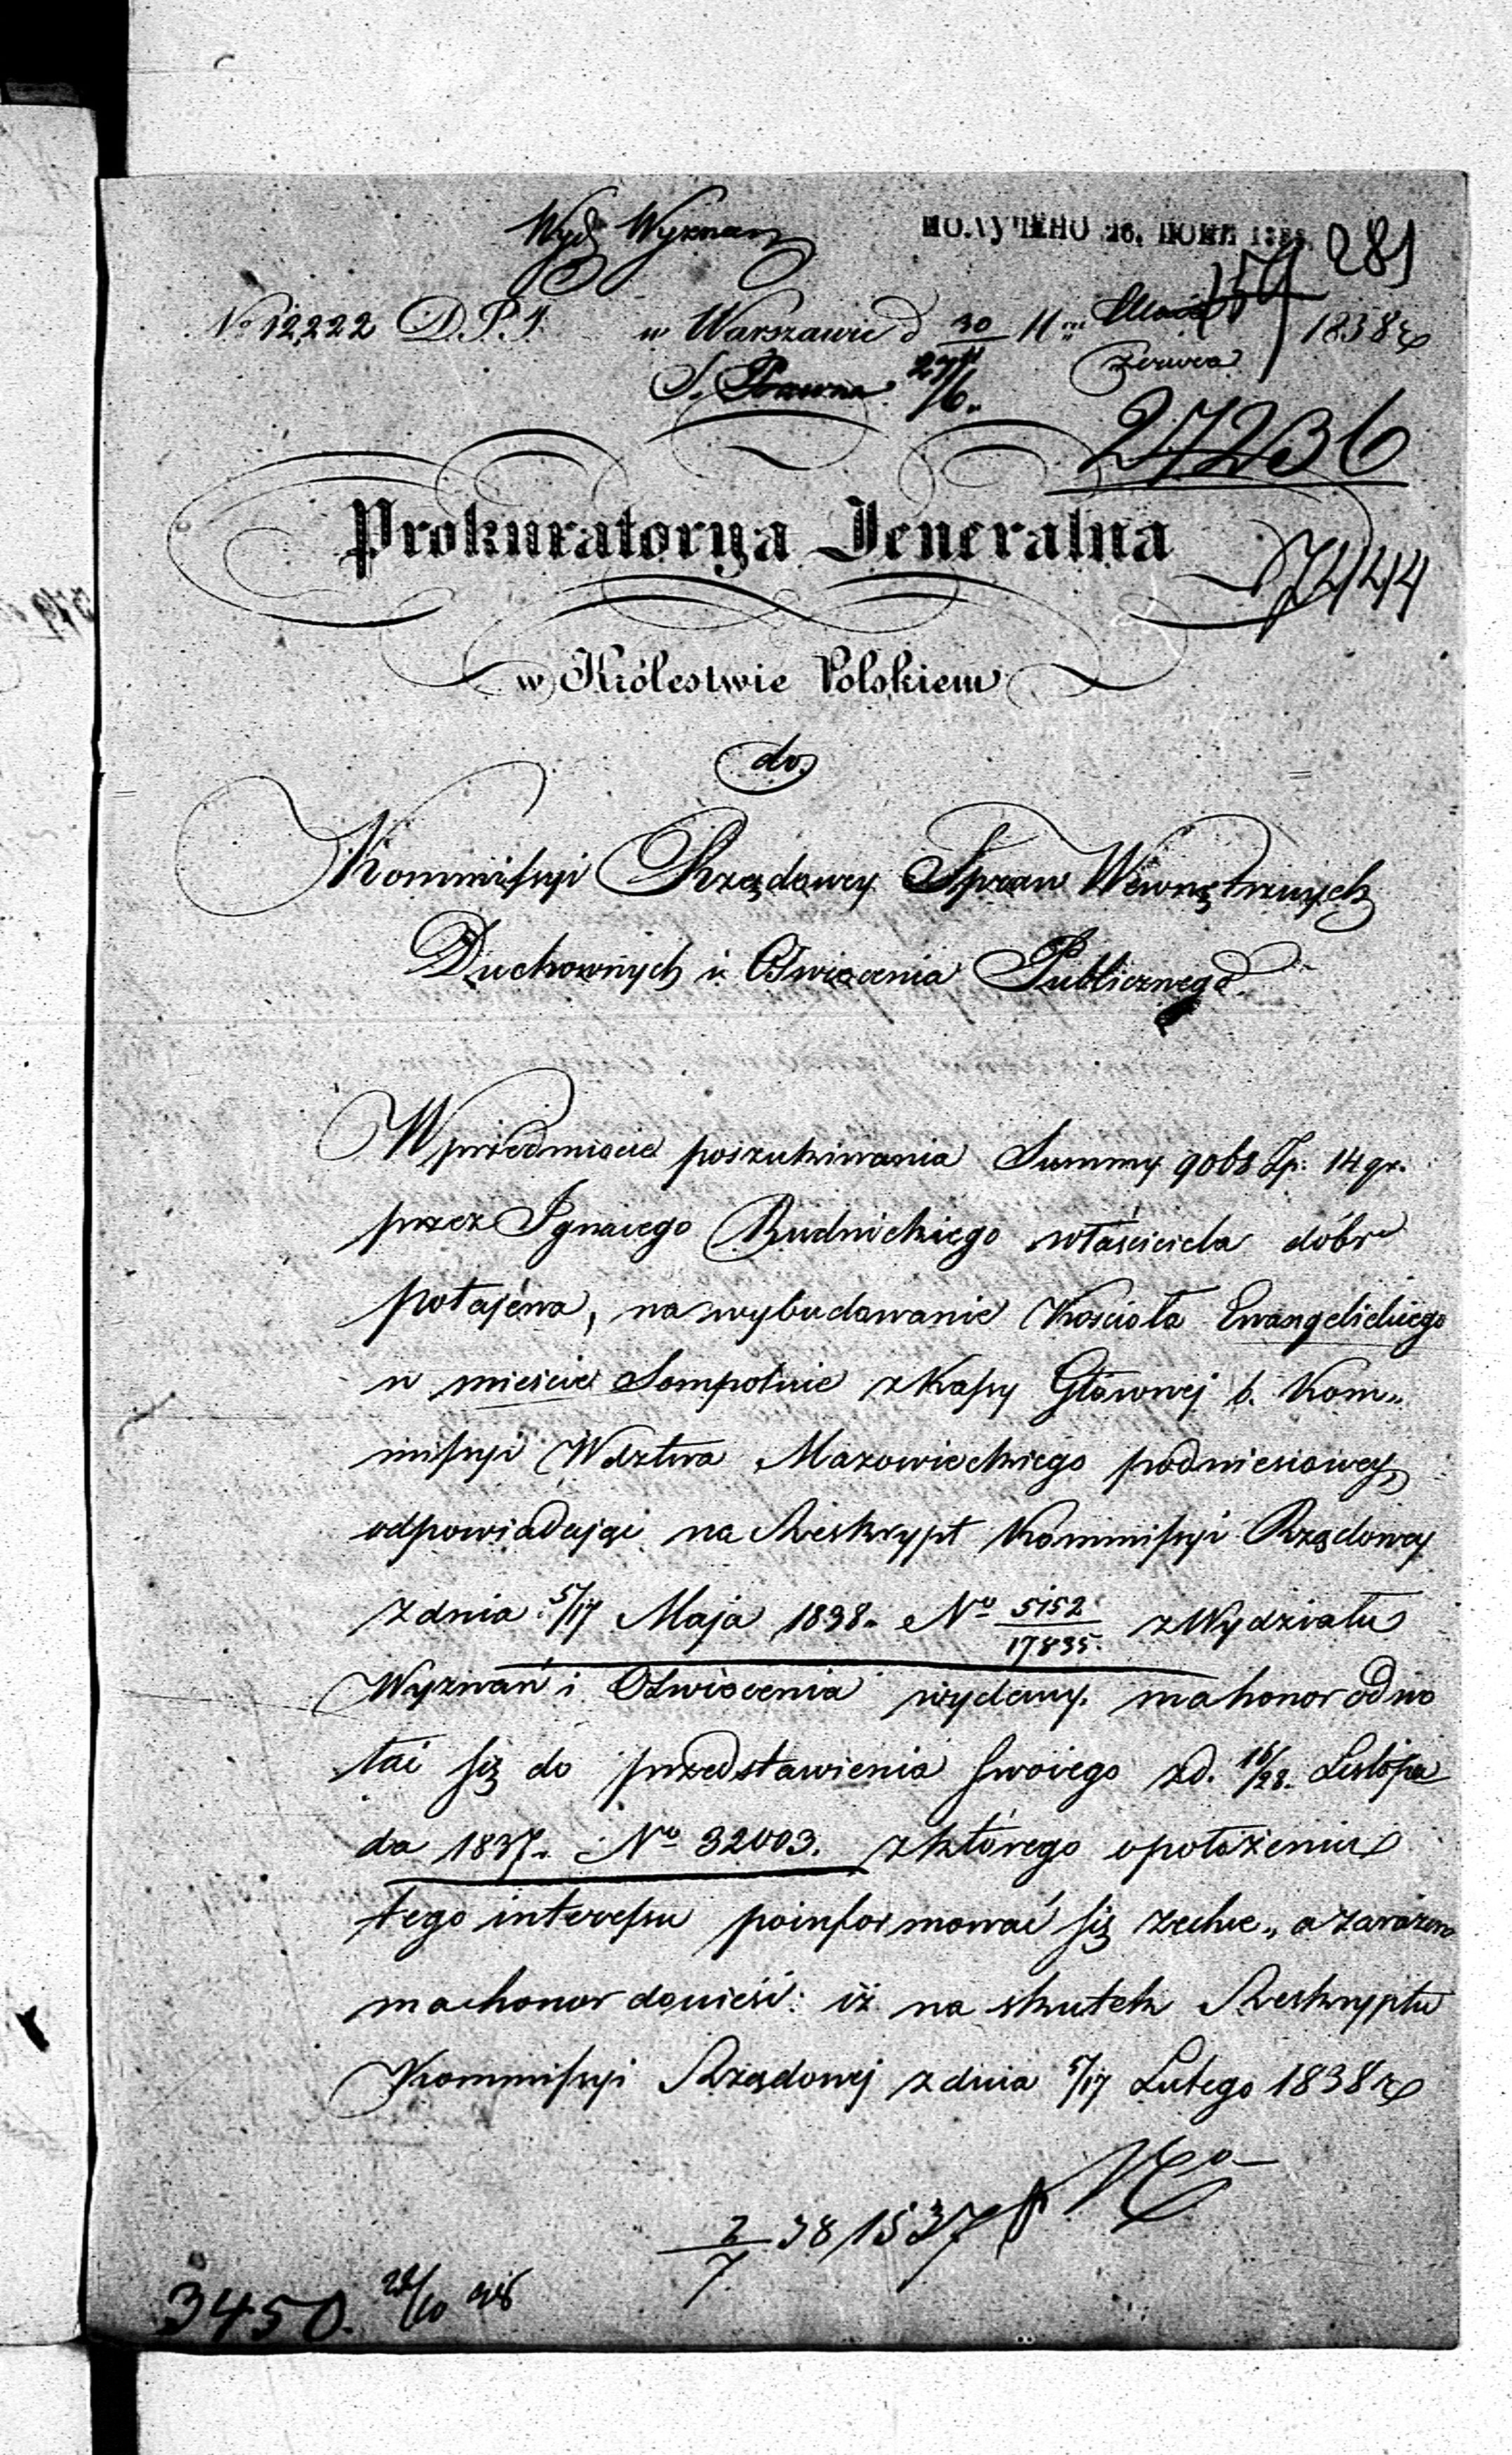 Wydz Wyznań
ПОЛУЧЕНО 26. ІЮНЯ 1838. 281
No 12,222 D.P.J. w Warszawie d 30/11 Maja 1838 r
S. Prawna 27/6. Czerwca
27236
Prokuratorya Jeneralna
7444
w Królestwie Polskiem
do
Kommissyi Rządowey Spraw Wewnętrznych
Duchownych i Oświecenia Publicznego
W przedmiocie poszukiwania Summy 9068 Zp: 14 gr.
przez Ignacego Rudnickiego właściciela dóbr
Połajewa, na wybudowanie Kościoła Ewangelickiego
w mieście Sompolnie z Kassy Głównej b. Kom„
missyi Wdztwa Mazowieckiego podniesioney,
odpowiadając na Reskrypt Kommissyi Rządowey
z dnia 5/17 Maja 1838. No 5152/17835. z Wydziału
Wyznań i Oświecenia wydany. ma honor odwo
łać się do przedstawienia swoiego z d. 16/28. Listopa
da 1837. No 32003. z którego o położeniu
tego interessu poinformować się zechce„ a zarazem
ma honor donieść: iż na skutek Reskryptu
Kommissyi Rządowej z dnia 5/17 Lutego 1838 r
No
2/7 38 1537
3450. 22/10 838